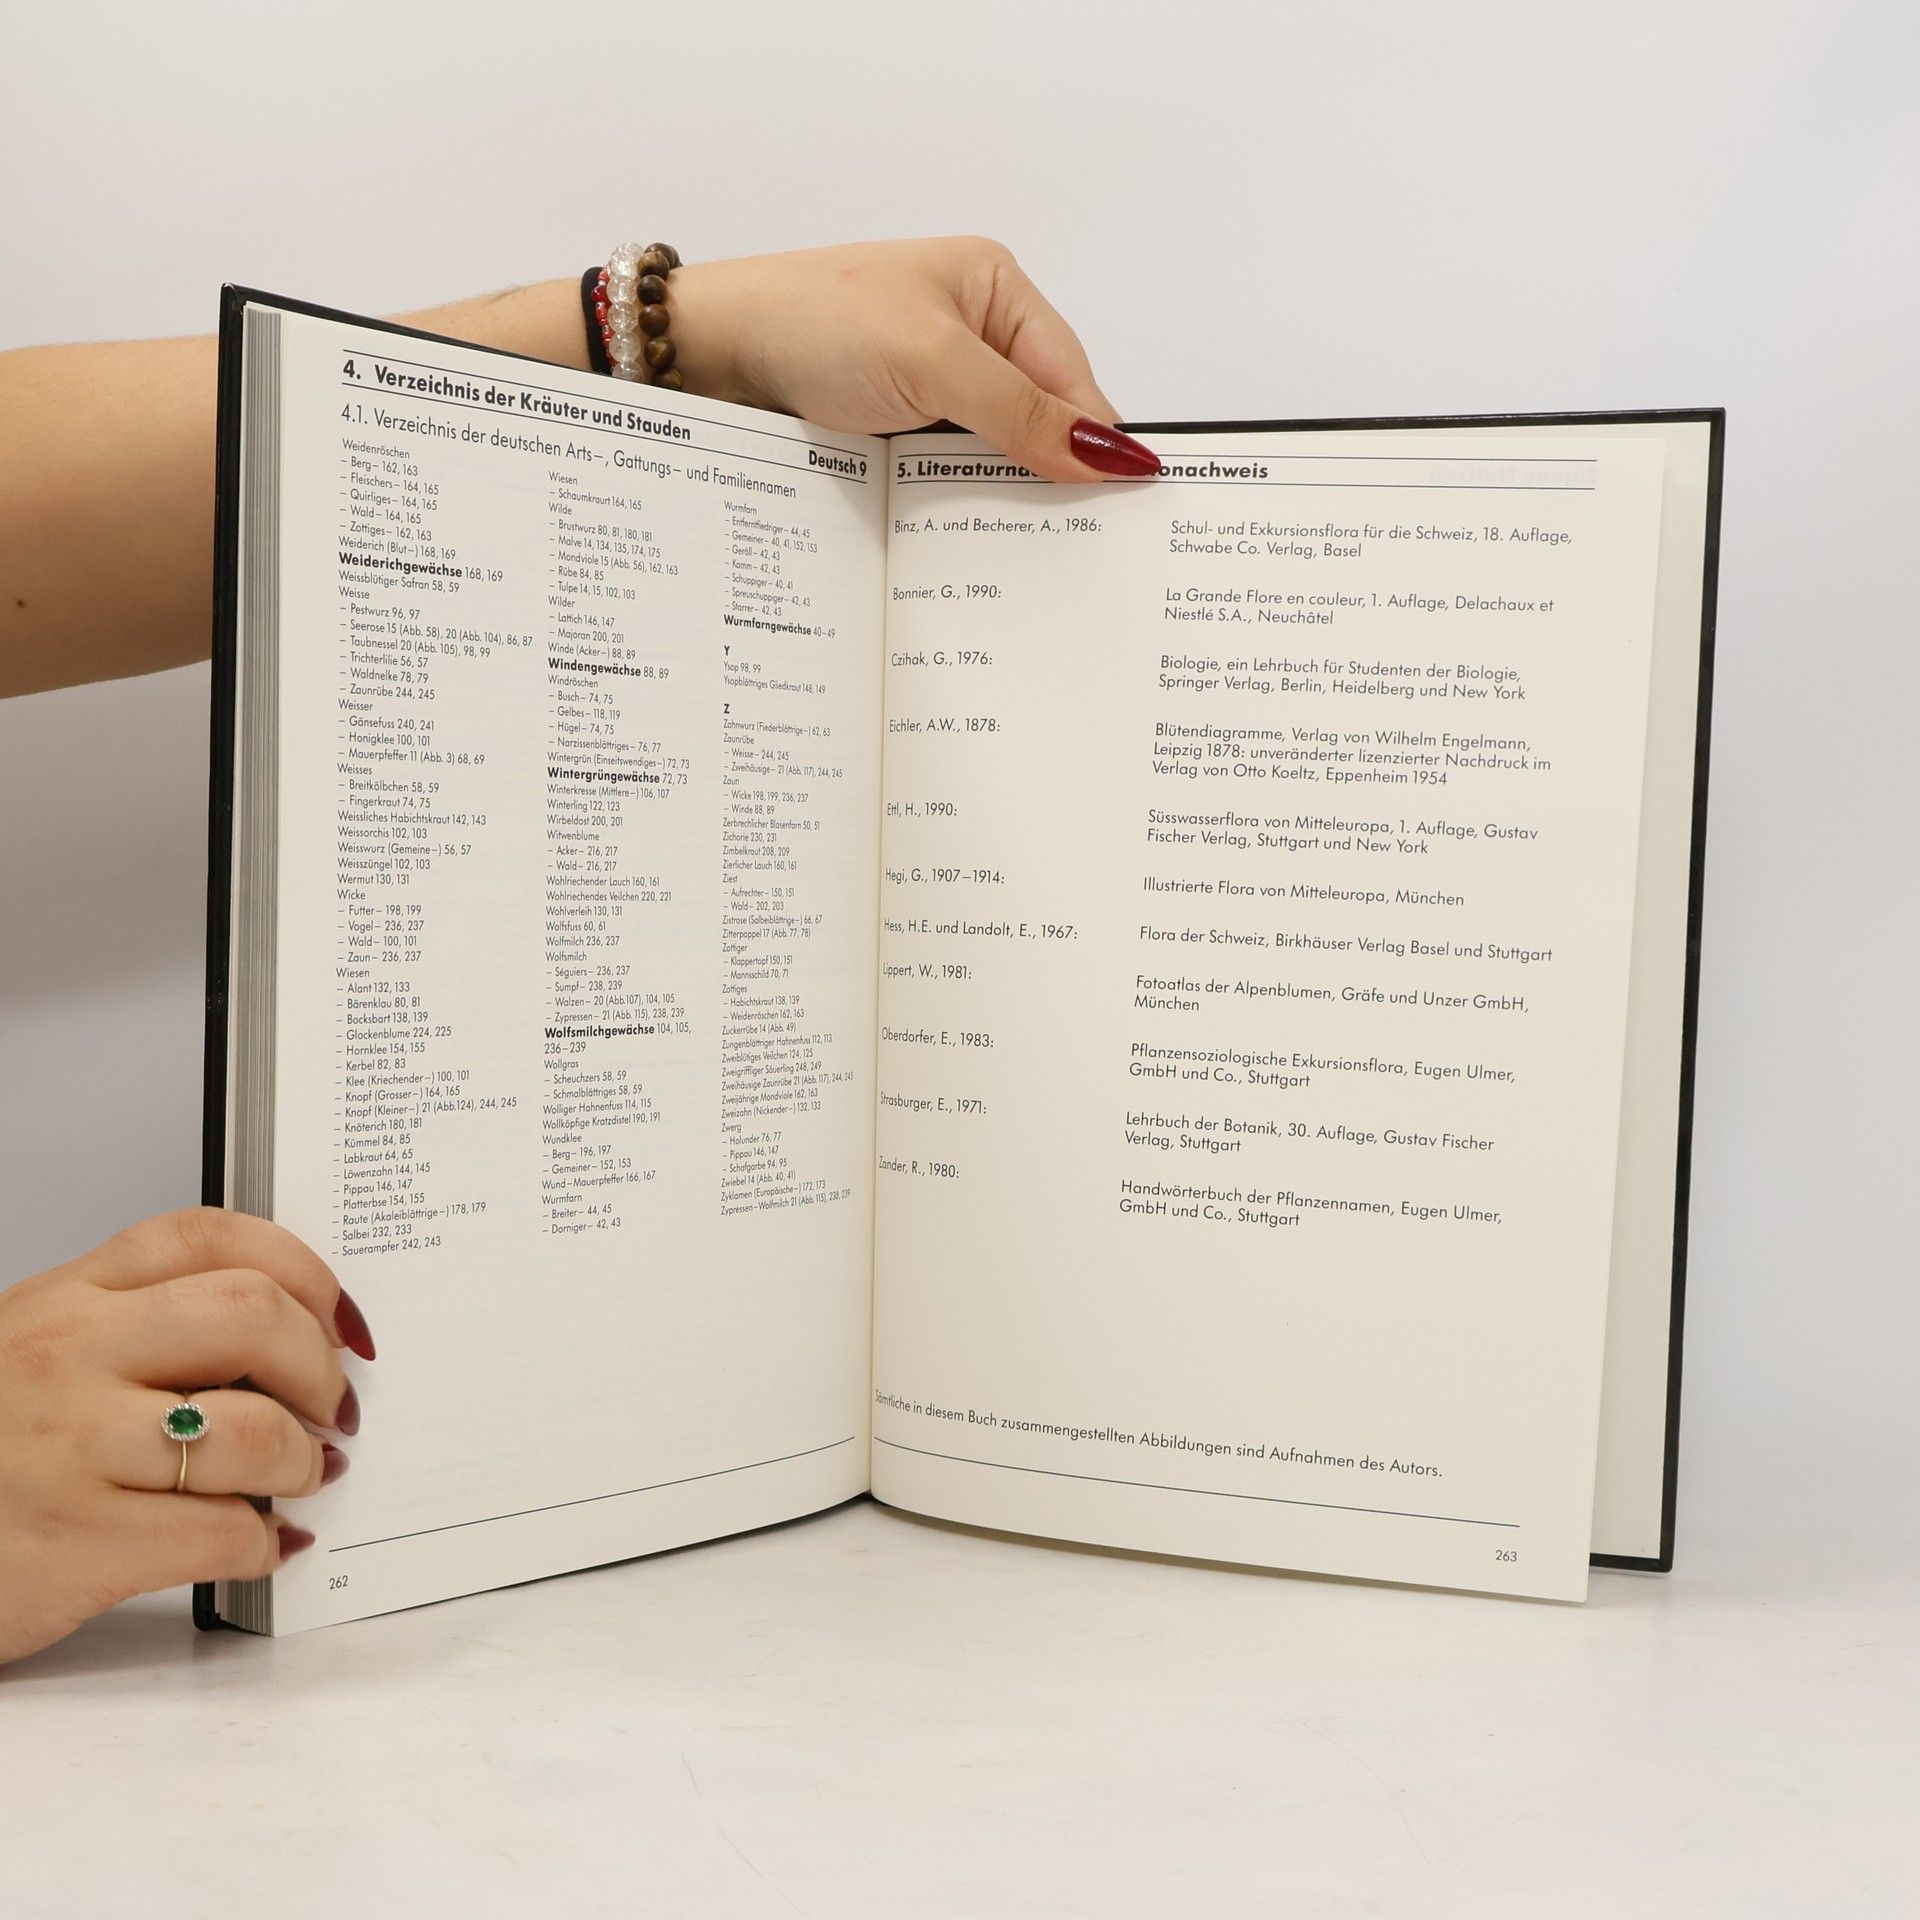 4. Verzeichnis der Kräuter und Stauden
4.1. Verzeichnis der deutschen Arts–, Gattungs– und Familiennamen
Deutsch 9
Weidenröschen
– Berg– 162, 163
– Fleischers– 164, 165
– Quirliges– 164, 165
– Wald– 164, 165
– Zottiges– 162, 163
Weiderich (Blut–) 168, 169
Weiderichgewächse 168, 169
Weissblütiger Safran 58, 59
Weisse
– Pestwurz 96, 97
– Seerose 15 (Abb. 58), 20 (Abb. 104), 86, 87
– Taubnessel 20 (Abb. 105), 98, 99
– Trichterlilie 56, 57
– Waldnelke 78, 79
– Zaunrübe 244, 245
Weisser
– Gänsefuss 240, 241
– Honigklee 100, 101
– Mauerpfeffer 11 (Abb. 3) 68, 69
Weisses
– Breitkölbchen 58, 59
– Fingerkraut 74, 75
Weissliches Habichtskraut 142, 143
Weissorchis 102, 103
Weisswurz (Gemeine–) 56, 57
Weisszüngel 102, 103
Wermut 130, 131
Wicke
– Futter– 198, 199
– Vogel– 236, 237
– Wald– 100, 101
– Zaun– 236, 237
Wiesen
– Alant 132, 133
– Bärenklau 80, 81
– Bocksbart 138, 139
– Glockenblume 224, 225
– Hornklee 154, 155
– Kerbel 82, 83
– Klee (Kriechender–) 100, 101
– Knopf (Grosser–) 164, 165
– Knopf (Kleiner–) 21 (Abb.124), 244, 245
– Knöterich 180, 181
– Kümmel 84, 85
– Labkraut 64, 65
– Löwenzahn 144, 145
– Pippau 146, 147
– Platterbse 154, 155
– Raute (Akaleiblättrige–) 178, 179
– Salbei 232, 233
– Sauerampfer 242, 243
Wiesen
– Schaumkraurt 164, 165
Wilde
– Brustwurz 80, 81, 180, 181
– Malve 14, 134, 135, 174, 175
– Mondviole 15 (Abb. 56), 162, 163
– Rübe 84, 85
– Tulpe 14, 15, 102, 103
Wilder
– Lattich 146, 147
– Majoran 200, 201
Winde (Acker–) 88, 89
Windengewächse 88, 89
Windröschen
– Busch– 74, 75
– Gelbes– 118, 119
– Hügel– 74, 75
– Narzissenblättriges– 76, 77
Wintergrün (Einseitswendiges–) 72, 73
Wintergrüngewächse 72, 73
Winterkresse (Mittlere–) 106, 107
Winterling 122, 123
Wirbeldost 200, 201
Witwenblume
– Acker– 216, 217
– Wald– 216, 217
Wohlriechender Lauch 160, 161
Wohlriechendes Veilchen 220, 221
Wohlverleih 130, 131
Wolfsfuss 60, 61
Wolfmilch 236, 237
Wolfsmilch
– Séguiers– 236, 237
– Sumpf– 238, 239
– Walzen– 20 (Abb.107), 104, 105
– Zypressen– 21 (Abb. 115), 238, 239
Wolfsmilchgewächse 104, 105,
236–239
Wollgras
– Scheuchzers 58, 59
– Schmalblättriges 58, 59
Wolliger Hahnenfuss 114, 115
Wollköpfige Kratzdistel 190, 191
Wundklee
– Berg– 196, 197
– Gemeiner– 152, 153
Wund–Mauerpfeffer 166, 167
Wurmfarn
– Breiter– 44, 45
– Dorniger– 42, 43
Wurmfarn
– Entferntfiedriger– 44, 45
– Gemeiner– 40, 41, 152, 153
– Geröll– 42, 43
– Kamm– 42, 43
– Schuppiger– 40, 41
– Spreuschuppiger– 42, 43
– Starrer– 42, 43
Wurmfarngewächse 40–49
Y
Ysop 98, 99
Ysopblättriges Gliedkraut 148, 149
Z
Zahnwurz (Fiederblättrige–) 62, 63
Zaunrübe
– Weisse– 244, 245
– Zweihäusige– 21 (Abb. 117), 244, 245
Zaun
– Wicke 198, 199, 236, 237
– Winde 88, 89
Zerbrechlicher Blasenfarn 50, 51
Zichorie 230, 231
Zimbelkraut 208, 209
Zierlicher Lauch 160, 161
Ziest
– Aufrechter– 150, 151
– Wald– 202, 203
Zistrose (Salbeiblättrige–) 66, 67
Zitterpappel 17 (Abb. 77, 78)
Zottiger
– Klappertopf 150, 151
– Mannsschild 70, 71
Zottiges
– Habichtskraut 138, 139
– Weidenröschen 162, 163
Zuckerrübe 14 (Abb. 49)
Zungenblättriger Hahnenfuss 112, 113
Zweiblütiges Veilchen 124, 125
Zweigriffliger Säuerling 248, 249
Zweihäusige Zaunrübe 21 (Abb. 117), 244, 245
Zweijährige Mondviole 162, 163
Zweizahn (Nickender–) 132, 133
Zwerg
– Holunder 76, 77
– Pippau 146, 147
– Schafgarbe 94, 95
Zwiebel 14 (Abb. 40, 41)
Zyklamen (Europäische–) 172, 173
Zypressen–Wolfmilch 21 (Abb. 115), 238, 239
262
5. Literaturna onachweis
Binz, A. und Becherer, A., 1986: Schul- und Exkursionsflora für die Schweiz, 18. Auflage,
Schwabe Co. Verlag, Basel
Bonnier, G., 1990: La Grande Flore en couleur, 1. Auflage, Delachaux et
Niestlé S.A., Neuchâtel
Czihak, G., 1976: Biologie, ein Lehrbuch für Studenten der Biologie,
Springer Verlag, Berlin, Heidelberg und New York
Eichler, A.W., 1878: Blütendiagramme, Verlag von Wilhelm Engelmann,
Leipzig 1878: unveränderter lizenzierter Nachdruck im
Verlag von Otto Koeltz, Eppenheim 1954
Ettl, H., 1990: Süsswasserflora von Mitteleuropa, 1. Auflage, Gustav
Fischer Verlag, Stuttgart und New York
Hegi, G., 1907–1914: Illustrierte Flora von Mitteleuropa, München
Hess, H.E. und Landolt, E., 1967: Flora der Schweiz, Birkhäuser Verlag Basel und Stuttgart
Lippert, W., 1981: Fotoatlas der Alpenblumen, Gräfe und Unzer GmbH,
München
Oberdorfer, E., 1983: Pflanzensoziologische Exkursionsflora, Eugen Ulmer,
GmbH und Co., Stuttgart
Strasburger, E., 1971: Lehrbuch der Botanik, 30. Auflage, Gustav Fischer
Verlag, Stuttgart
Zander, R., 1980: Handwörterbuch der Pflanzennamen, Eugen Ulmer,
GmbH und Co., Stuttgart
Sämtliche in diesem Buch zusammengestellten Abbildungen sind Aufnahmen des Autors.
263